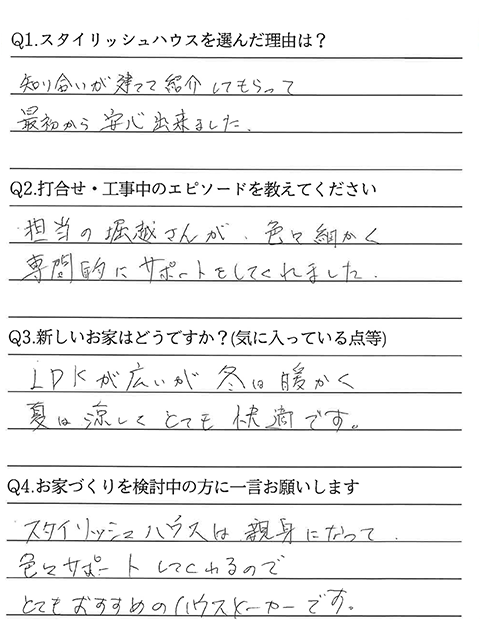 Q1.スタイリッシュハウスを選んだ理由は？
知り合いが建てて紹介してもらって
最初から安心出来ました.
Q2.打合せ・工事中のエピソードを教えてください
担当の堀越さんが、色々細かく
専門的にサポートをしてくれました.
Q3.新しいお家はどうですか？(気に入っている点等)
LDKが広いが冬は暖かく
夏は涼しくとても快適です。
Q4.お家づくりを検討中の方に一言お願いします
スタイリッシュハウスは親身になって、
色々サポートしてくれるので
とてもおすすめのハウスメーカーです。